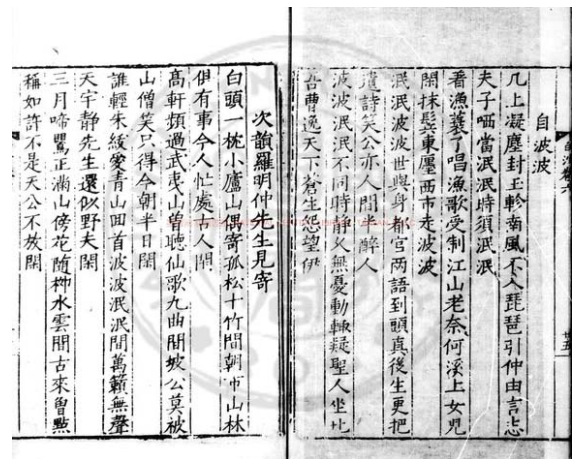 自波波
几上凝塵封玉軫南風不入琵琶引仲由言志
夫子哂當泯泯時須泯泯
着漁蓑了唱漁歌受制江山老奈何溪上女兒
閑抹鬂東壥西市走波波
泯泯波波世與身都宫两語到頭真後生更把
遺詩笑公亦人間半醉人
波波泯泯不同時静久無憂動輙疑聖人坐此
吾曹逸天下蒼生怨望伊
次韻羅明仲先生見寄
白頭一枕小廬山偶寄孤松十竹間朝市山林
俱有事今人忙處古人閒
髙軒頻過武夷山曽聽仙歌九曲閒坡公莫被
山僧笑只得今朝半日閒
誰輕朱紱愛青山回首波波泯泯間萬籟無聲
天宇静先生還似野夫閑
三月啼鸎正滿山傍花随栁水雲閒古來曽㸃
稱如許不是天公不放閑
廿五